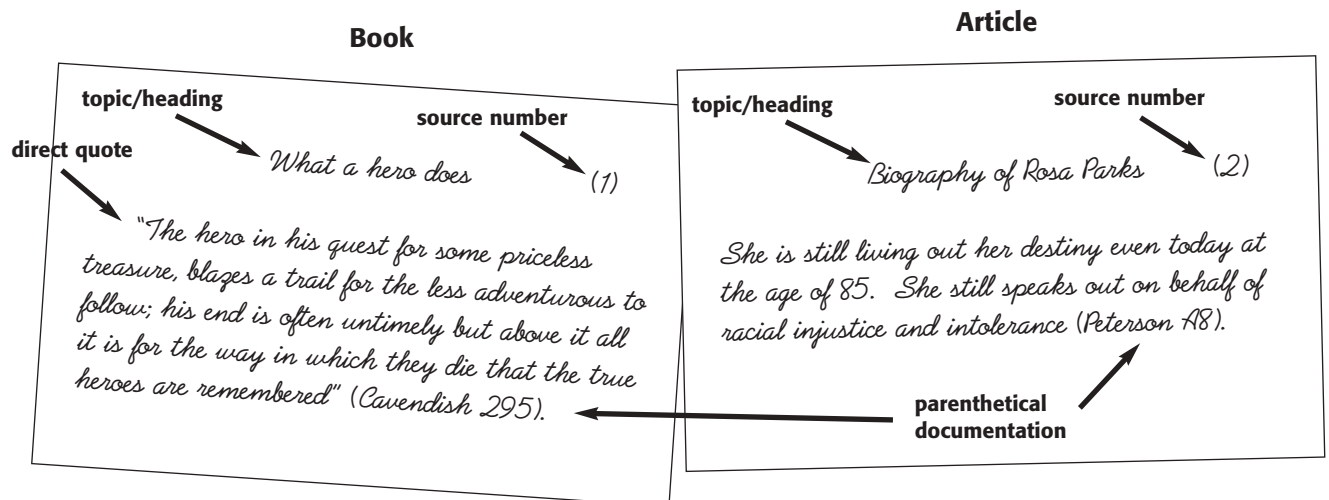 Book
topic/heading
source number
direct quote
What a hero does
(1)
"The hero in his quest for some priceless
treasure, blazes a trail for the less adventurous to
follow; his end is often untimely but above it all
it is for the way in which they die that the true
heroes are remembered" (Cavendish 295).
Article
topic/heading
source number
Biography of Rosa Parks
(2)
She is still living out her destiny even today at
the age of 85. She still speaks out on behalf of
racial injustice and intolerance (Peterson A8).
parenthetical
documentation